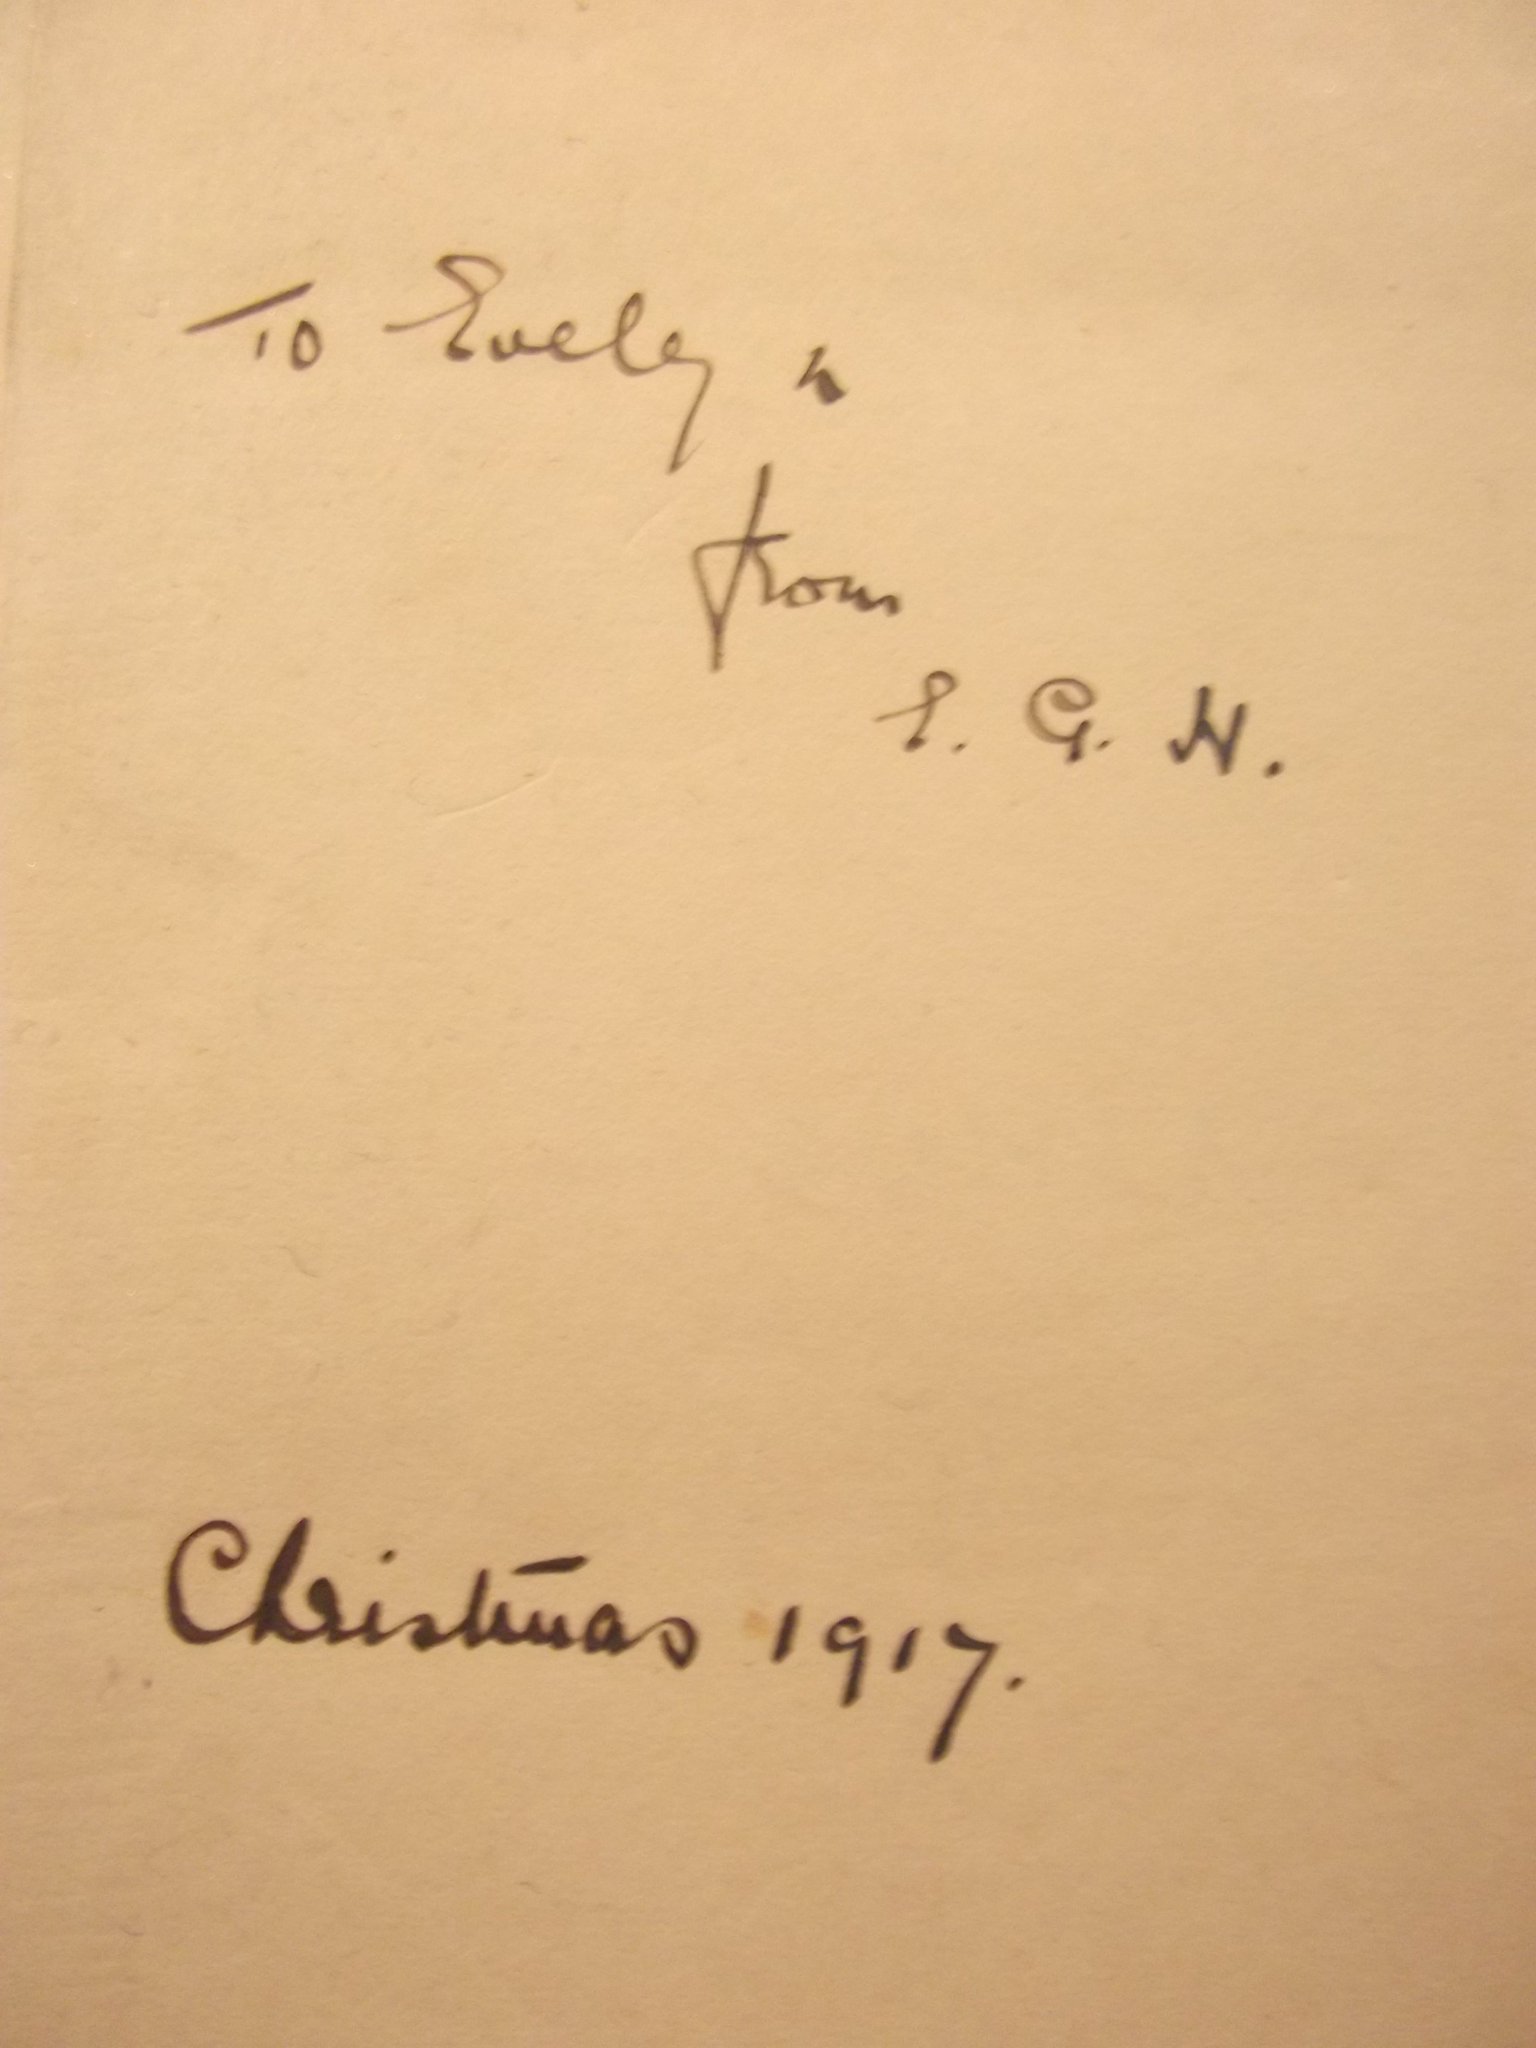 To Evelyn
from
E. G. H.
Christmas 1917.